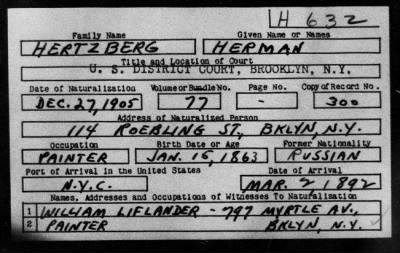 H 632
Family Name Given Name or Names
HERTZBERG HERMAN
Title and Location of Court
U. S. DISTRICT COURT, BROOKLYN, N.Y.
Date of Naturalization Volume or Bundle No. Page No. Copy of Record No.
DEC. 27, 1905 77 - 300
Address of Naturalized Person
114 ROEBLING ST., BKLYN, N.Y.
Occupation Birth Date or Age Former Nationality
PAINTER JAN. 15, 1863 RUSSIAN
Port of Arrival in the United States Date of Arrival
N.Y.C. MAR. 2 1892
Names, Addresses and Occupations of Witnesses To Naturalization
1 WILLIAM LIFLANDER - 797 MYRTLE AV.,
2 PAINTER BKLYN, N.Y.